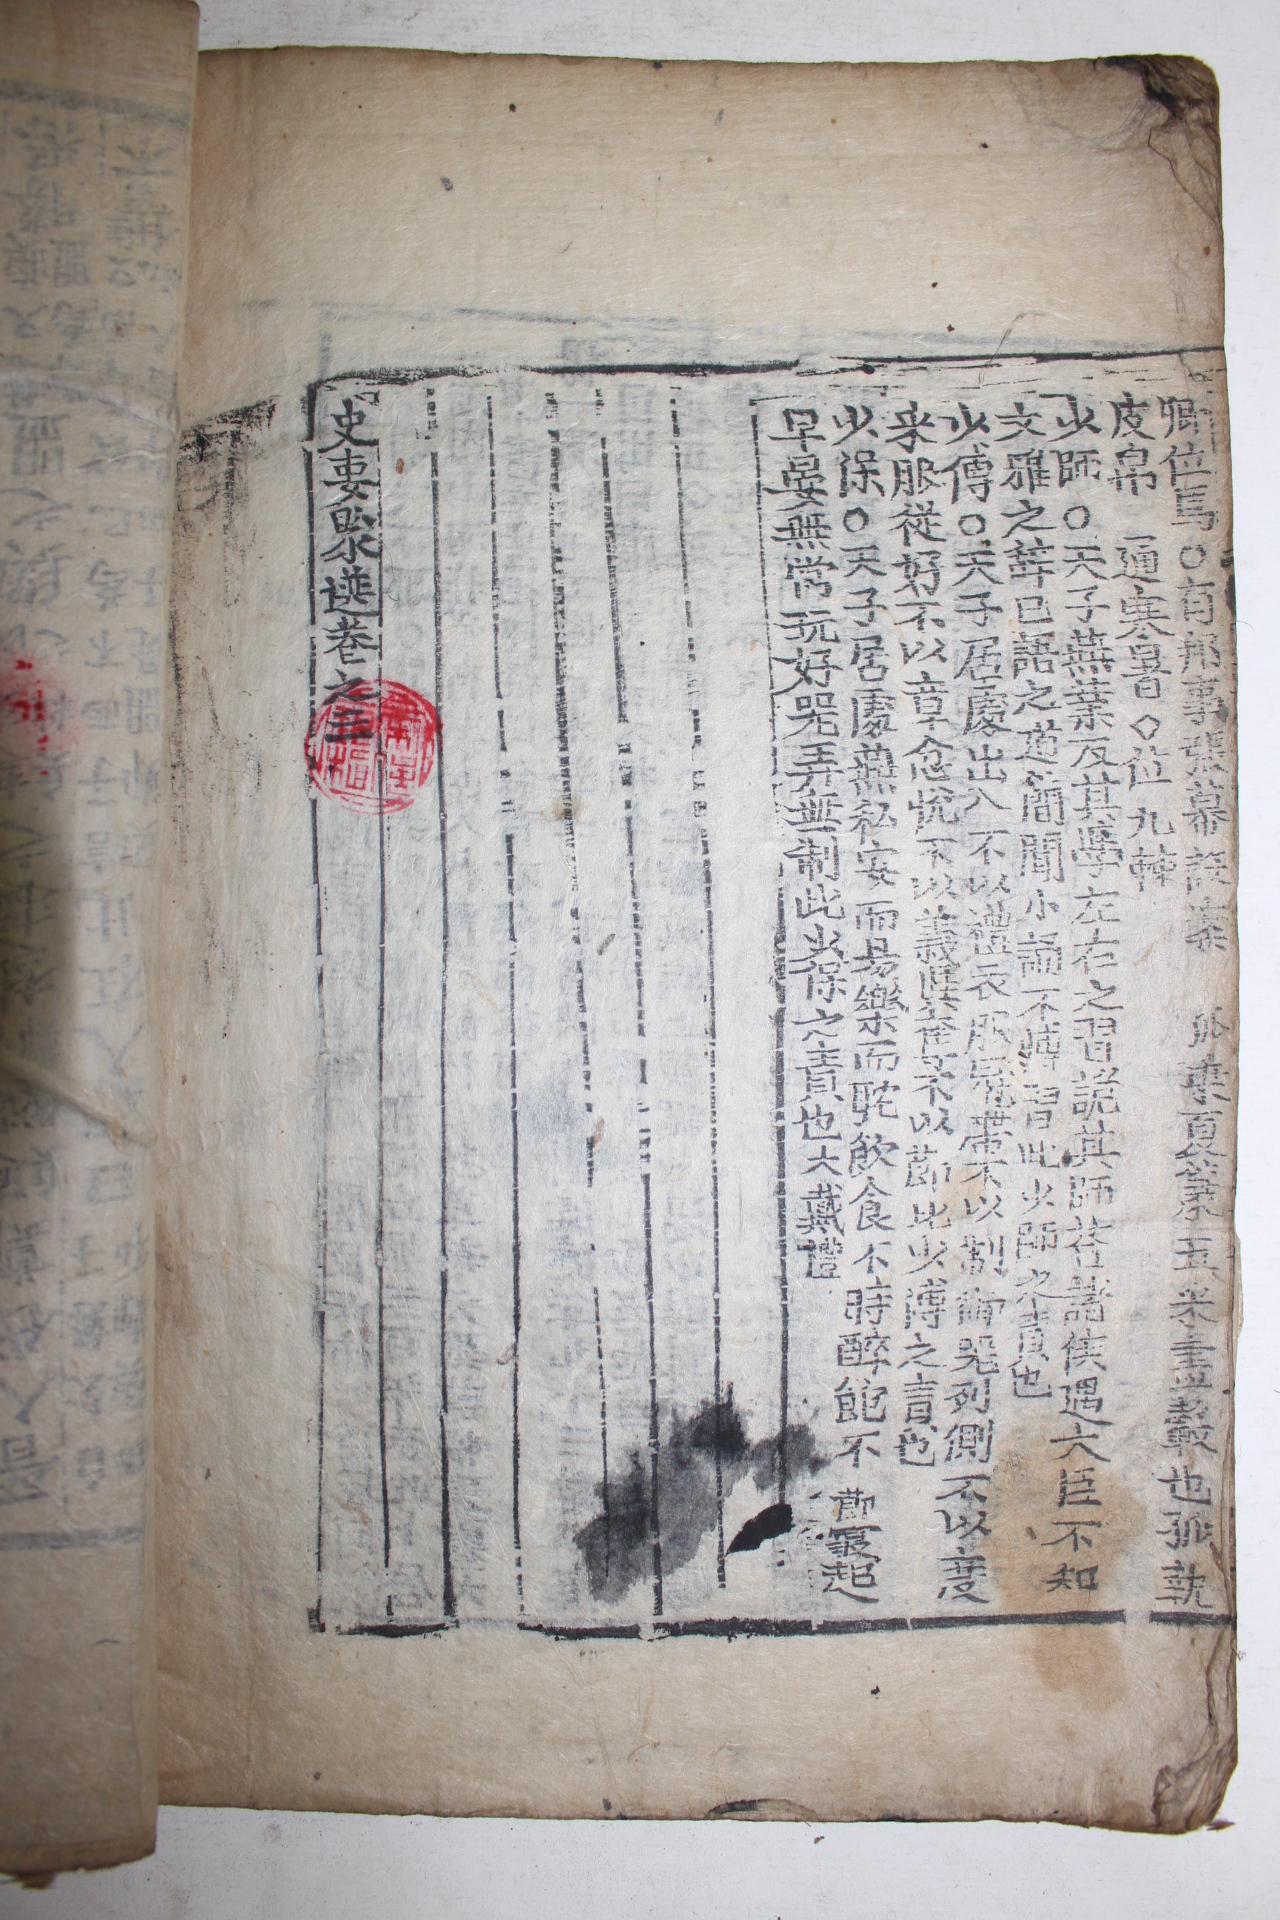 卿位焉○有邦事張幕設案 孤乘夏篆五采畫轂也孤執
皮帛 通寒暑 ◇位九棘
少師○天子燕業反其學左右之習詭其師荅諸侯遇大臣不知
文雅之辞已語之道簡聞小誦不博習此少師之責也
少傅○天子居處出入不以禮衣服冠帶不以制御器列側不以度
采服從好不以章忿悅不以義與奪不以節此少傅之責也
少保○天子居處燕私安而易樂而耽飲食不時醉飽不節寢起
早晏無常玩好器弄無制此少保之責也大戴禮
史要聚選卷之三